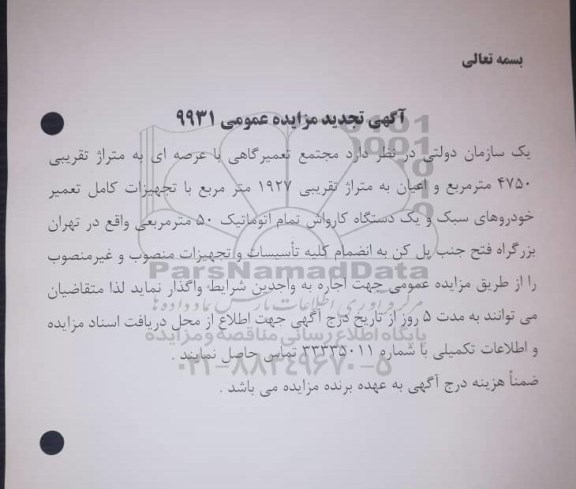 بسمه تعالی
آگهی تجدید مزایده عمومی ۹۹۳۱
یک سازمان دولتی در نظر دارد مجتمع تعمیرگاهی با عرصه ای به متراژ تقریبی
۴۷۵۰ مترمربع و اعیان به متراژ تقریبی ۱۹۲۷ متر مربع با تجهیزات کامل تعمیر
خودروهای سبک و یک دستگاه کارواش تمام اتوماتیک ۵۰ مترمربعی واقع در تهران
بزرگراه فتح جنب پل کن به انضمام کلیه تأسیسات و تجهیزات منصوب و غیرمنصوب
را از طریق مزایده عمومی جهت اجاره به واجدین شرایط واگذار نماید لذا متقاضیان
می توانند به مدت ۵ روز از تاریخ درج آگهی جهت اطلاع از محل دریافت اسناد مزایده
و اطلاعات تکمیلی با شماره ۳۳۳۳۵۰۱۱ تماس حاصل نمایند .
ضمناً هزینه درج آگهی به عهده برنده مزایده می باشد .
ParsNamadData
پایگاه اطلاع رسانی مناقصه و مزایده
۰۲۱-۸۸۳۴۹۶۷۰-۵